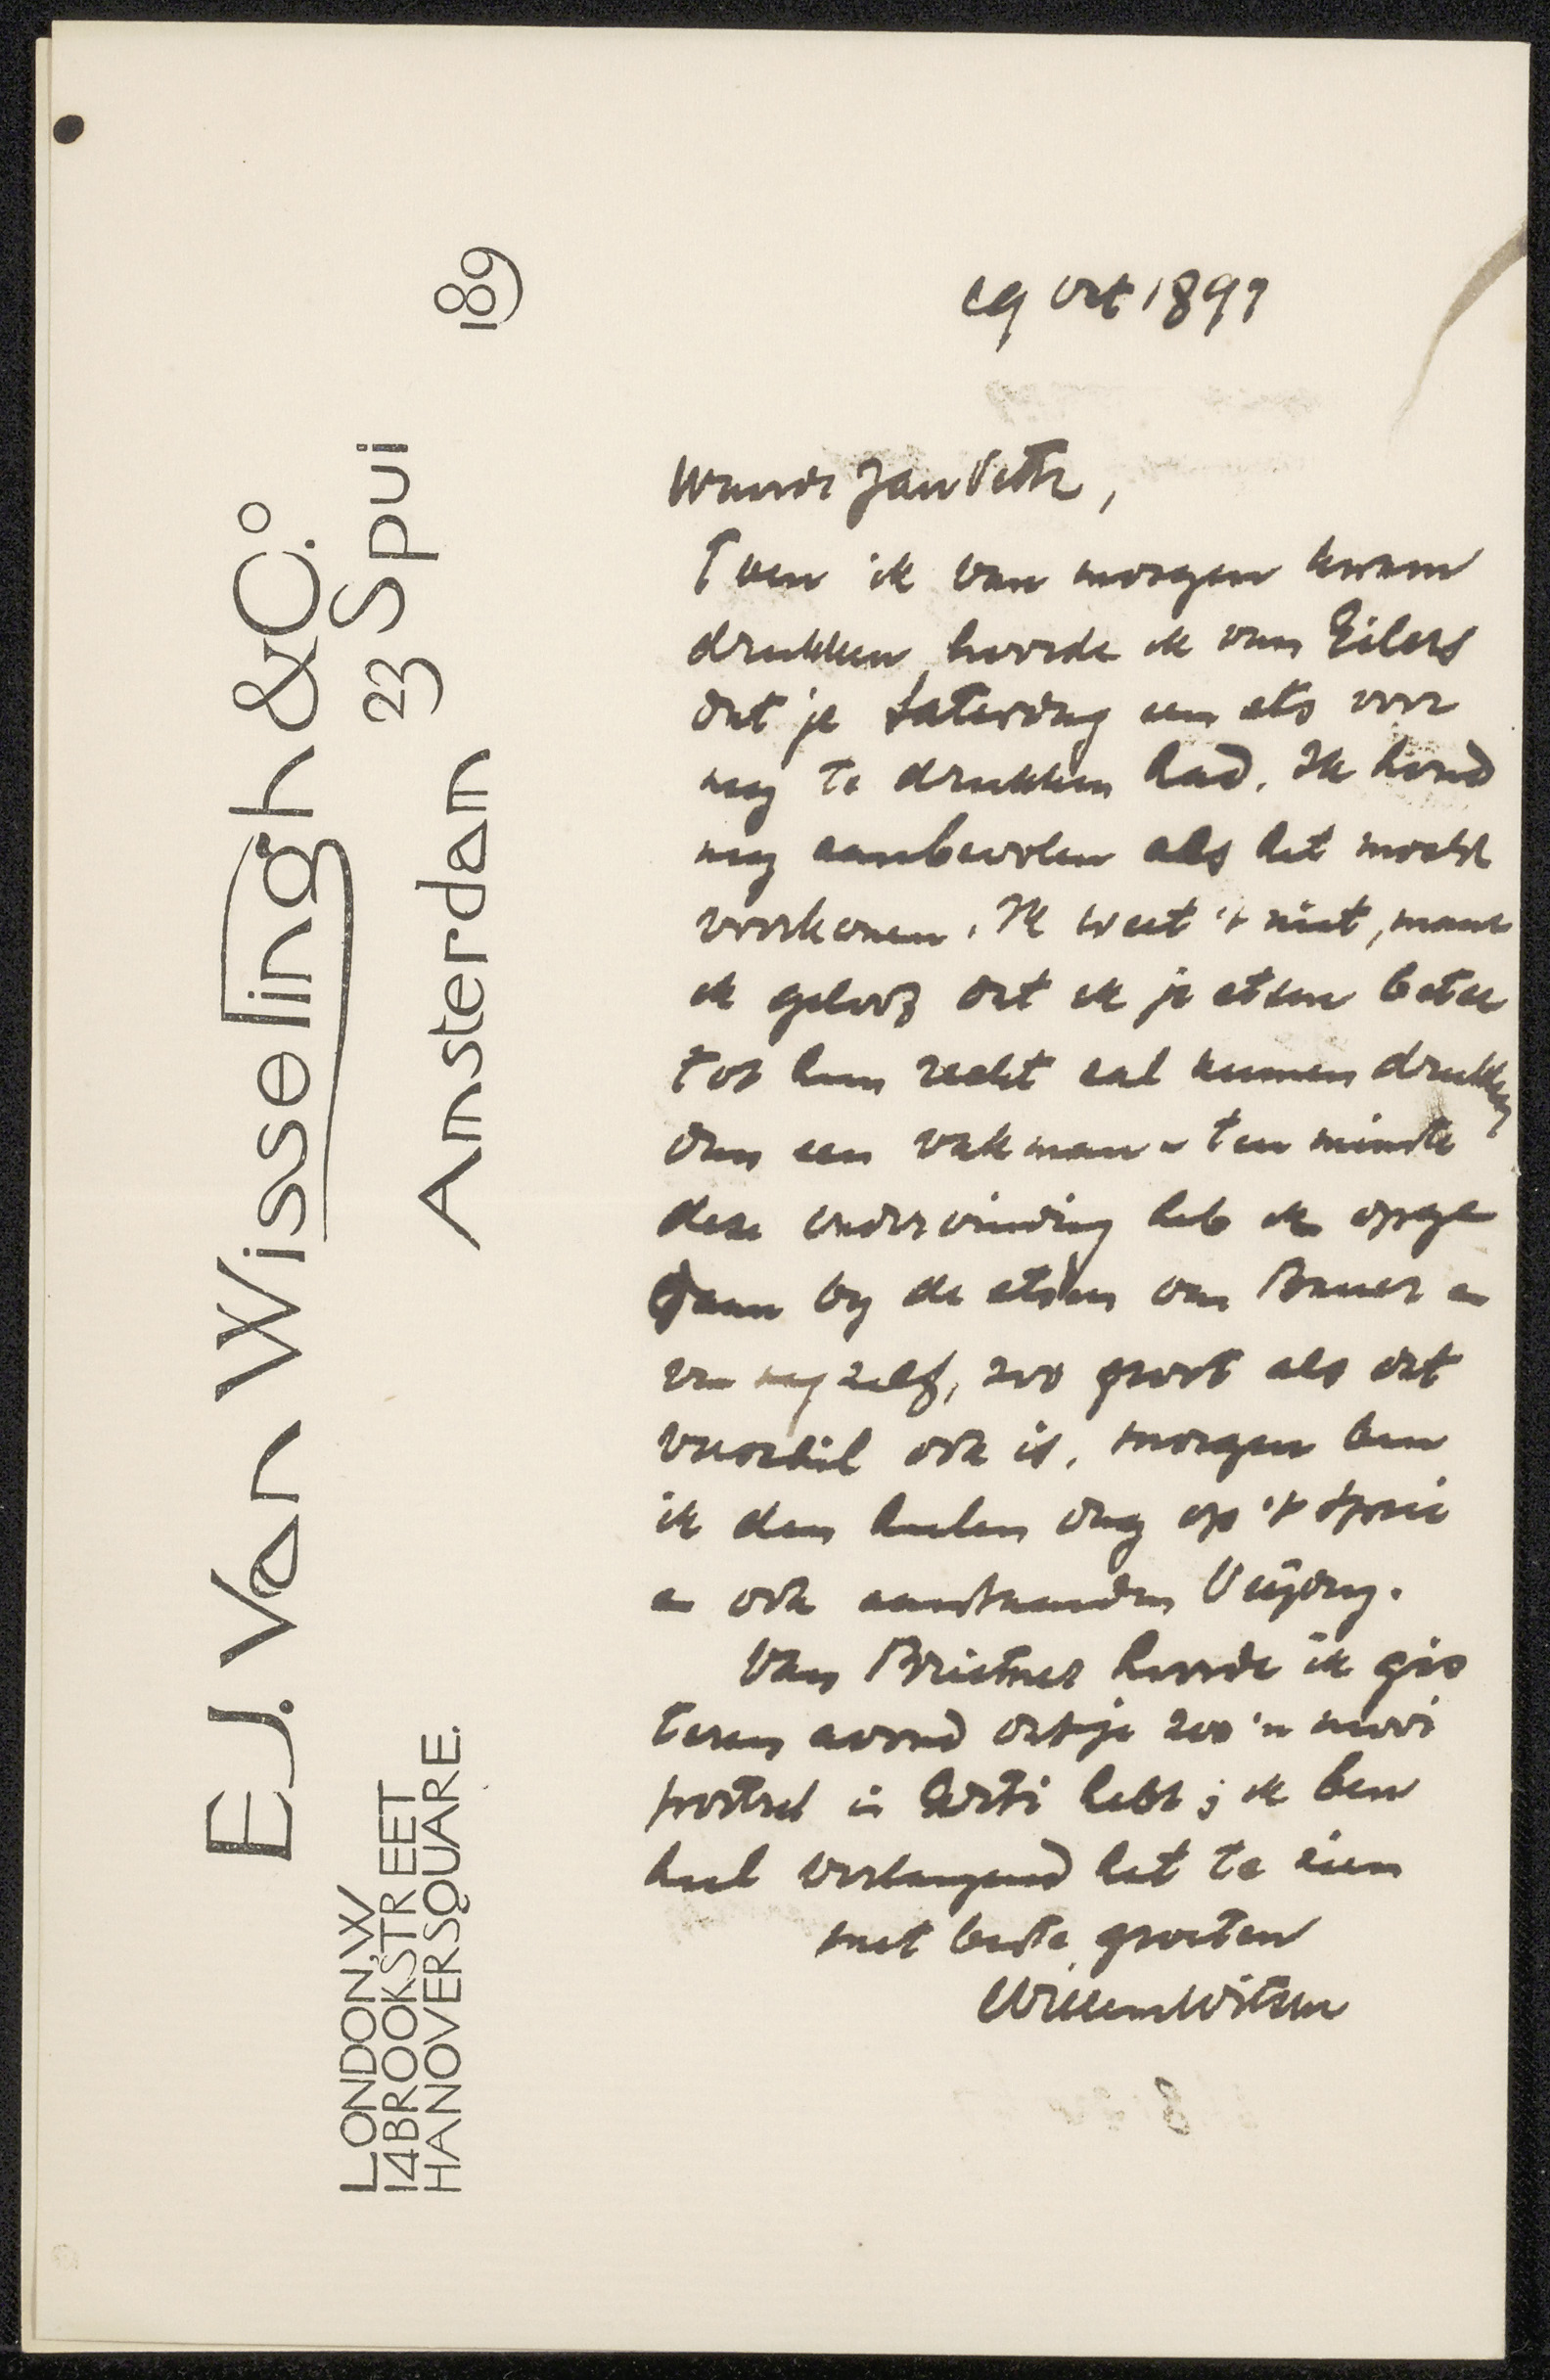 E.J. Van Wisselingh & Co.
23 Spui
Amsterdam
189
LONDON.W
14 BROOKSTREET
HANOVERSQUARE.
19 Oct 1897
Waarde Jan Veth,
Toen ik van morgen kwam
drukken, hoorde ik van Eilers
dat je Saterdag een ets voor
mij te drukken had. Ik houd
mij aanbevolen als het mocht
voorkomen. Ik weet 't niet, maar
ik geloof dat ik je etsen beter
tot hun recht zal kunnen drukken
dan een vakman - ten minste
deze ondervinding heb ik opge
daan bij de etsen van Bauer en
van mij zelf, zoo groot als dat
verschil ook is. Morgen ben
ik den heelen dag op 't Spui
en ook aanstaanden Vrijdag.
Van Breitner hoorde ik gis
teren avond dat je zoo 'n mooi
portret in Arti hebt; ik ben
heel verlangend het te zien
met beste groeten
Willem Witsen